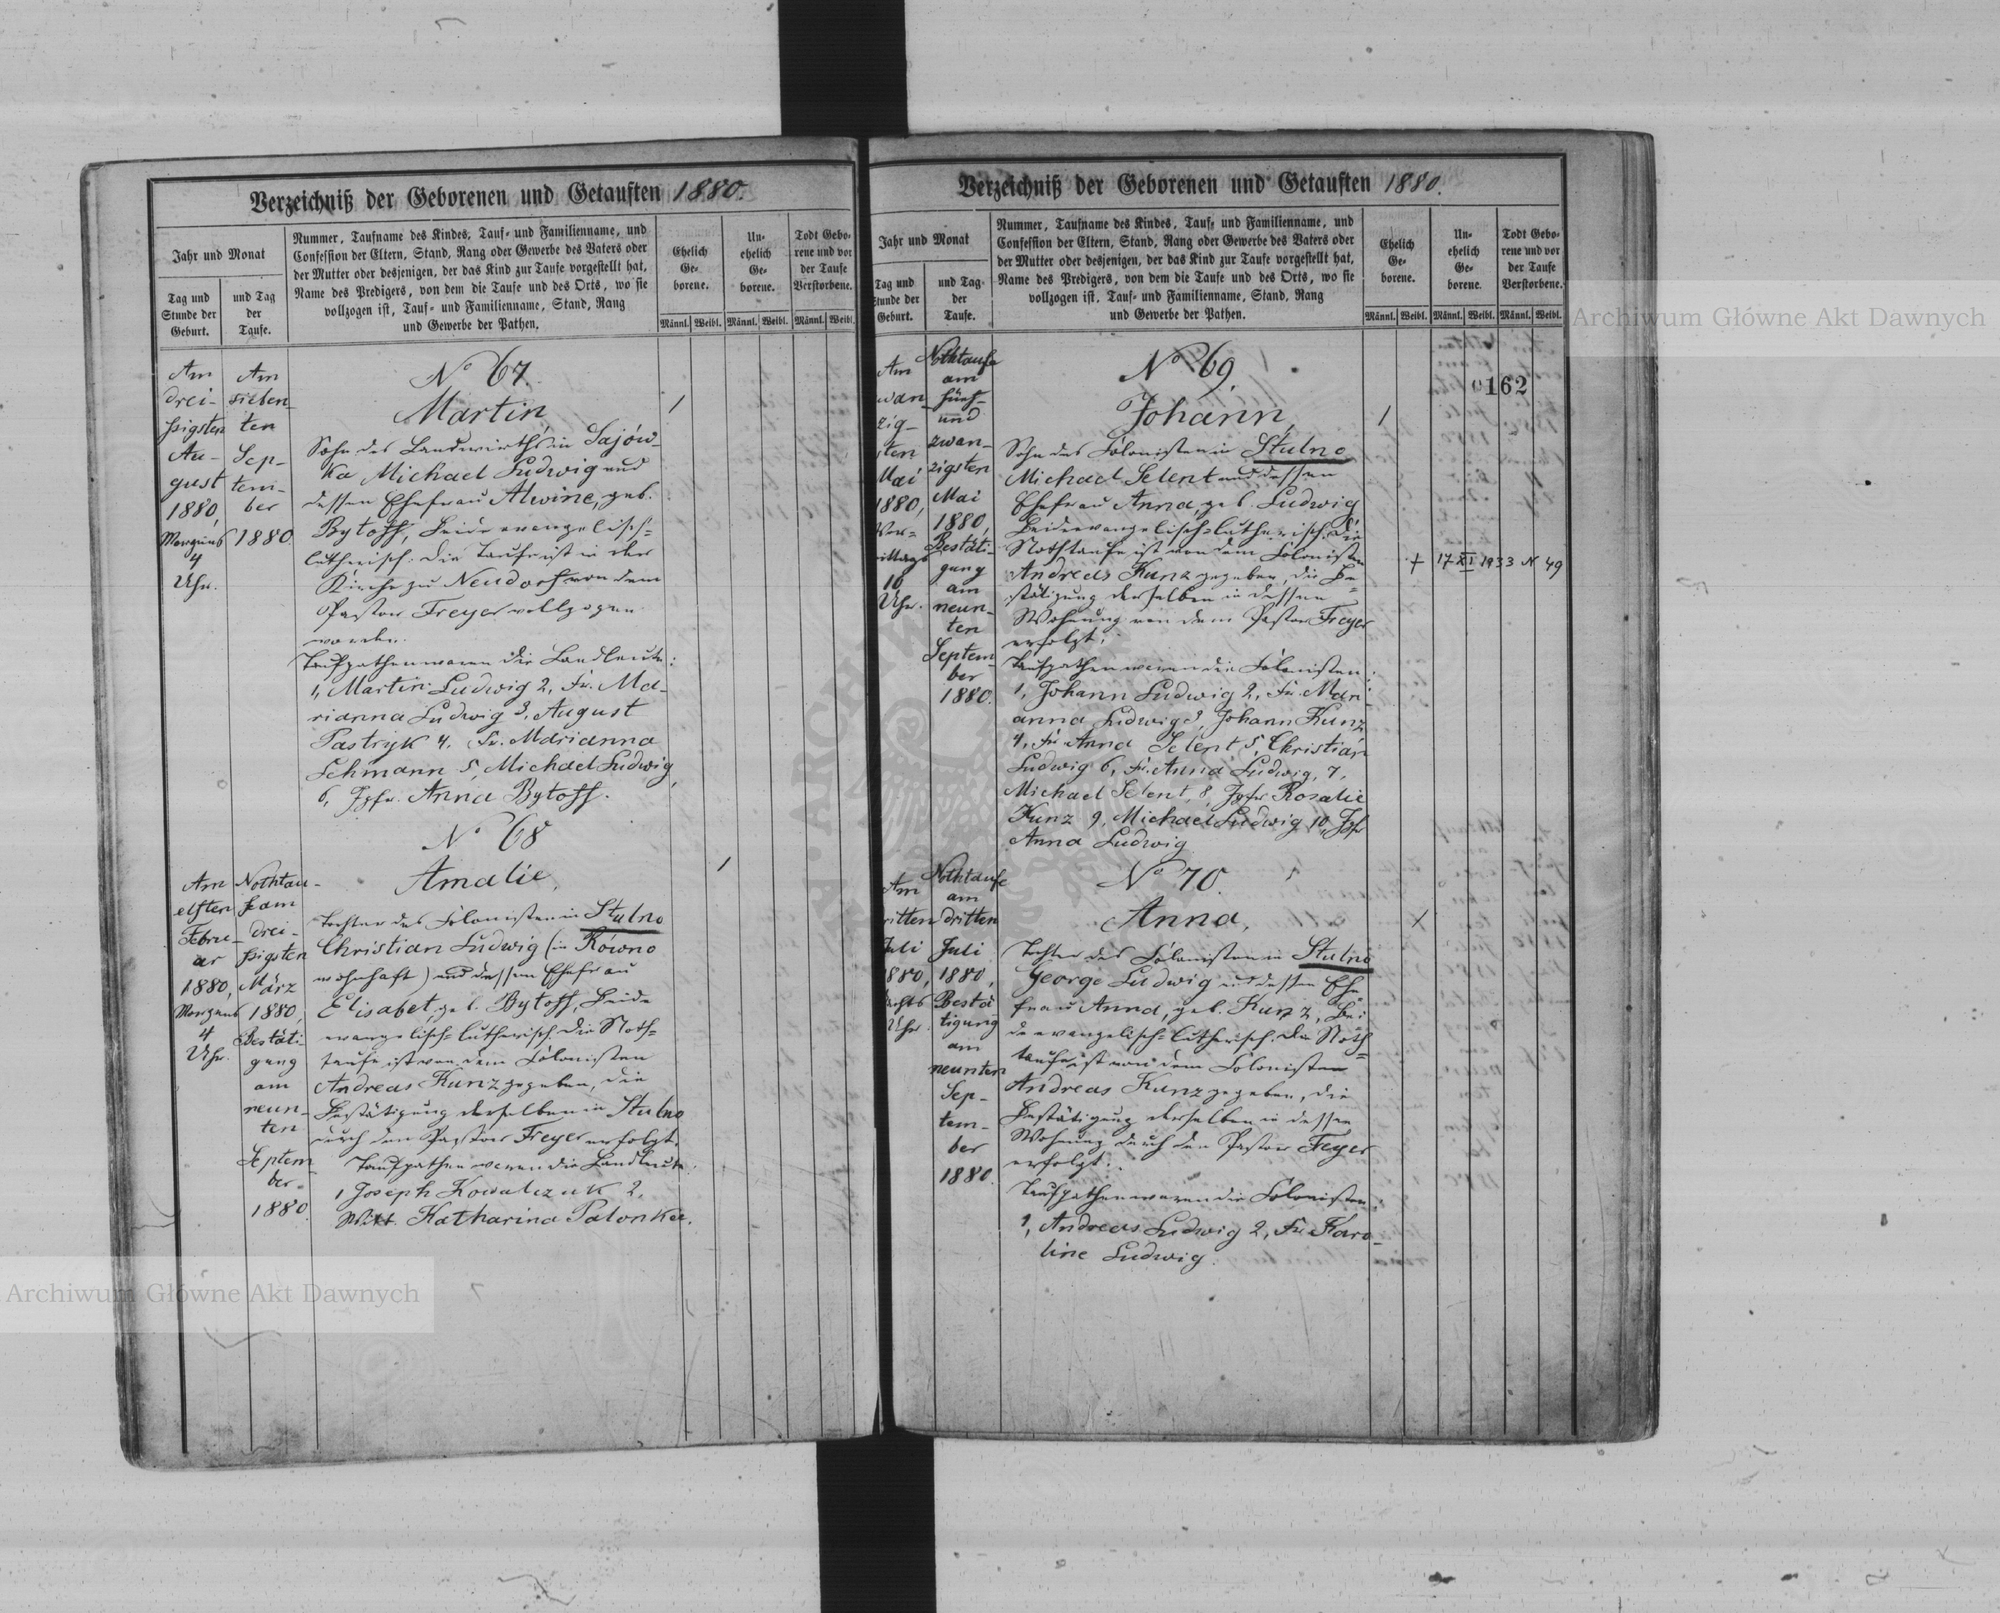 Verzeichniß der Geborenen und Getauften 1880.
Jahr und Monat
Tag und
Stunde der
Geburt.
und Tag
der
Taufe.
Nummer, Taufname des Kindes, Tauf- und Familienname, und
Confession der Eltern, Stand, Rang oder Gewerbe des Vaters oder
der Mutter oder desjenigen, der das Kind zur Taufe vorgestellt hat,
Name des Predigers, von dem die Taufe und des Orts, wo sie
vollzogen ist, Tauf- und Familienname, Stand, Rang
und Gewerbe der Pathen.
Ehelich
Ge-
borene.
Un-
ehelich
Ge-
borene.
Todt Gebo-
rene und vor
der Taufe
Verstorbene.
Männl. Weibl. Männl. Weibl. Männl. Weibl.
Am
drei-
ßigsten
Au-
gust
1880,
Morgens
4
Uhr.
Am
sieben-
ten
Sep-
tem-
ber
1880.
No 67.
Martin,
1
Sohn des Landwirths in Sajów-
ka Michael Ludwig und
dessen Ehefrau Alwine, geb.
Bytoff, beide evangelisch-
lutherisch. Die Taufe ist in der
Kirche zu Neudorf von dem
Pastor Freyer vollzogen
worden.
Taufpathen waren die Landleute:
1, Martin Ludwig 2, Fr. Ma-
rianna Ludwig 3, August
Pastryk 4, Fr. Marianna
Lehmann 5, Michael Ludwig
6, Jgfr. Anna Bytoff.
No 68
Amalie,
1
Am
elften
Febru-
ar
1880,
Morgens
4
Uhr.
Nothtau-
fe am
drei-
ßigsten
März
1880,
Bestäti-
gung
am
neun-
ten
Septem-
ber
1880.
Tochter des Colonisten in Stulno
Christian Ludwig (in Równo
wohnhaft) und dessen Ehefrau
Elisabet, geb. Bytoff, beide
evangelisch-lutherisch. Die Noth-
taufe ist von dem Colonisten
Andreas Kunz gegeben, die
Bestätigung derselben in Stulno
durch den Pastor Freyer erfolgt.
Taufpathen waren die Landleute:
1, Joseph Kowalczuk 2,
Witt. Katharina Palonka.
Verzeichniß der Geborenen und Getauften 1880.
Jahr und Monat
Tag und
Stunde der
Geburt.
und Tag
der
Taufe.
Nummer, Taufname des Kindes, Tauf- und Familienname, und
Confession der Eltern, Stand, Rang oder Gewerbe des Vaters oder
der Mutter oder desjenigen, der das Kind zur Taufe vorgestellt hat,
Name des Predigers, von dem die Taufe und des Orts, wo sie
vollzogen ist, Tauf- und Familienname, Stand, Rang
und Gewerbe der Pathen.
Ehelich
Ge-
borene.
Un-
ehelich
Ge-
borene.
Todt Gebo-
rene und vor
der Taufe
Verstorbene.
Männl. Weibl. Männl. Weibl. Männl. Weibl.
162
Am
wan-
zig-
sten
Mai
1880,
Vor-
mittags
10
Uhr.
Nothtaufe
am
fünf-
und
zwan-
zigsten
Mai
1880,
Bestäti-
gung
am
neun-
ten
Septem-
ber
1880.
No 69.
Johann,
1
Sohn des Colonisten in Stulno
Michael Selent und dessen
Ehefrau Anna, geb. Ludwig
beide evangelisch-lutherisch. Die
Nothtaufe ist von dem Colonisten
Andreas Kunz gegeben, die Be-
stätigung derselben in dessen
Wohnung von dem Pastor Freyer
erfolgt.
+ 17 XI 1933 N 49
Taufpathen waren die Colonisten:
1, Johann Ludwig 2, Fr. Mari-
anna Ludwig 3, Johann Kunz
4, Fr. Anna Selent 5, Christian
Ludwig 6, Fr. Anna Ludwig, 7,
Michael Selent, 8, Jgfr. Rosalie
Kunz 9, Michael Ludwig 10, Jgfr
Anna Ludwig.
No 70.
Anna,
Am
ritten
Juli
1880,
Uhr.
Nothtaufe
am
dritten
Juli
1880,
Bestä-
tigung
am
neunten
Sep-
tem-
ber
1880.
Tochter des Colonisten in Stulno
George Ludwig und dessen Ehe-
frau Anna, geb. Kunz, bei-
de evangelisch-lutherisch. Die Noth-
taufe ist von dem Colonisten
Andreas Kunz gegeben, die
Bestätigung derselben in dessen
Wohnung durch den Pastor Freyer
erfolgt.
Taufpathen waren die Colonisten:
1, Andreas Ludwig 2, Fr. Karo-
line Ludwig.
Archiwum Główne Akt Dawnych
Archiwum Główne Akt Dawnych